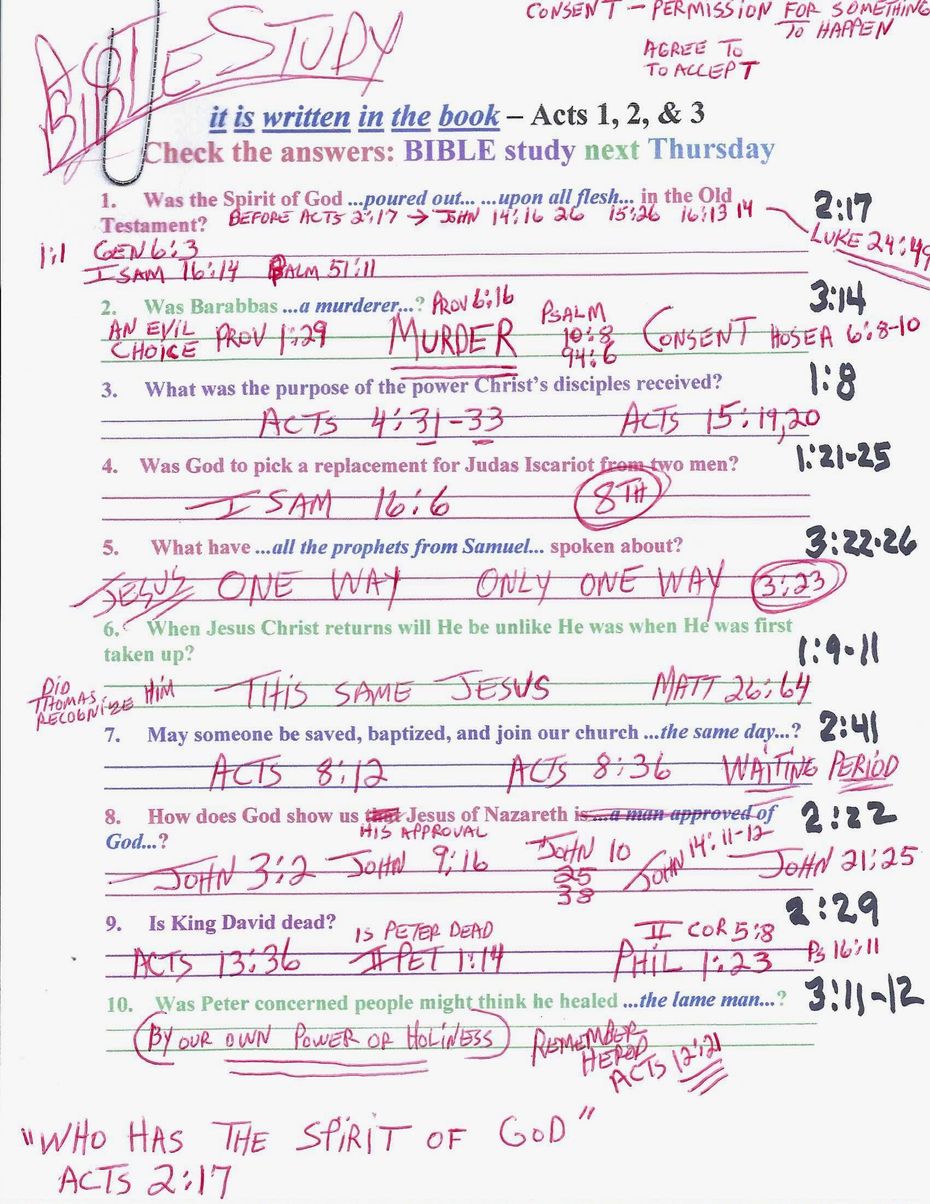 CONSENT – PERMISSION FOR SOMETHING
TO HAPPEN
AGREE TO
TO ACCEPT
BIBLE STUDY
it is written in the book – Acts 1, 2, & 3
Check the answers: BIBLE study next Thursday
1. Was the Spirit of God ...poured out... ...upon all flesh... in the Old 2:17
Testament? BEFORE ACTS 2:17 → JOHN 14:16 26 15:26 16:13 14
LUKE 24:49
1:1 GEN 6:3
I SAM 16:14 PSALM 51:11
2. Was Barabbas ...a murderer...? PROV 6:16 3:14
AN EVIL CHOICE PROV 1:29 MURDER PSALM 10:8 94:6 CONSENT HOSEA 6:8-10
3. What was the purpose of the power Christ's disciples received? 1:8
ACTS 4:31-33 ACTS 15:19,20
4. Was God to pick a replacement for Judas Iscariot from two men? 1:21-25
I SAM 16:6 8TH
5. What have ...all the prophets from Samuel... spoken about? 3:22-26
JESUS ONE WAY ONLY ONE WAY 3:23
6. When Jesus Christ returns will He be unlike He was when He was first
taken up? 1:9-11
DID THOMAS RECOGNIZE HIM THIS SAME JESUS MATT 26:64
7. May someone be saved, baptized, and join our church ...the same day...? 2:41
ACTS 8:12 ACTS 8:36 WAITING PERIOD
8. How does God show us that Jesus of Nazareth is...a man approved of 2:22
God...? HIS APPROVAL
JOHN 3:2 JOHN 9:16 JOHN 10 25 38 JOHN 14:11-12 JOHN 21:25
9. Is King David dead? 2:29
IS PETER DEAD II COR 5:8
ACTS 13:36 II PET 1:14 PHIL 1:23 PS 16:11
10. Was Peter concerned people might think he healed ...the lame man...? 3:11-12
(BY OUR OWN POWER OR HOLINESS) REMEMBER
HEROD
ACTS 12:21
"WHO HAS THE SPIRIT OF GOD"
ACTS 2:17